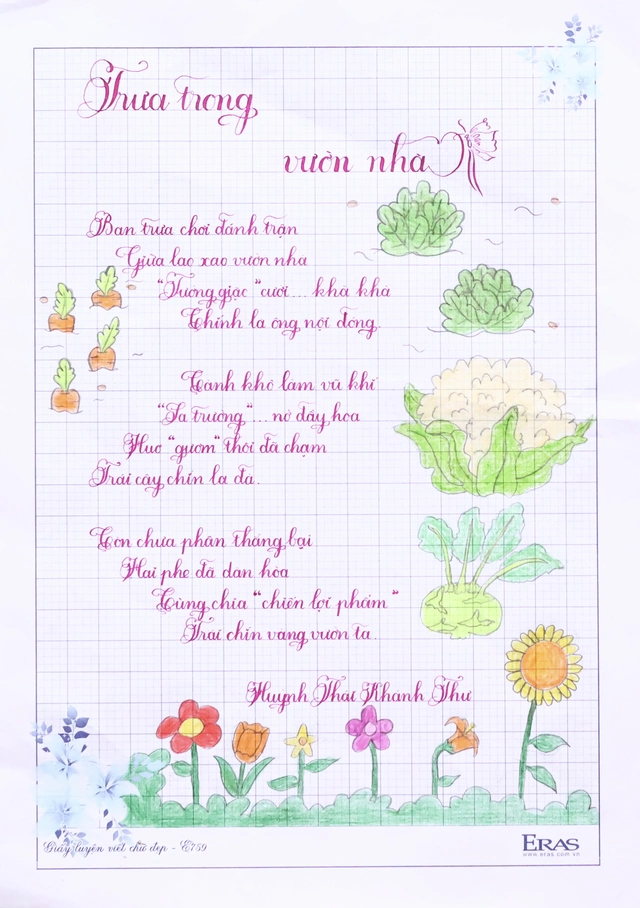 Trưa trong
vườn nhà
Ban trưa chơi đánh trận
Giữa lao xao vườn nhà
"Tướng giặc" cười... khà khà
Chính là ông nội đóng.
Cành khô làm vũ khí
"Sa trường"... nở đầy hoa
Huơ "gươm" thôi đã chạm
Trái cây chín la đà.
Còn chưa phân thắng bại
Hai phe đã dàn hòa
Cùng chia "chiến lợi phẩm"
Trái chín vàng vườn ta.
Huỳnh Thái Khánh Thư
Giấy luyện viết chữ đẹp - E759
ERAS
www.eras.com.vn